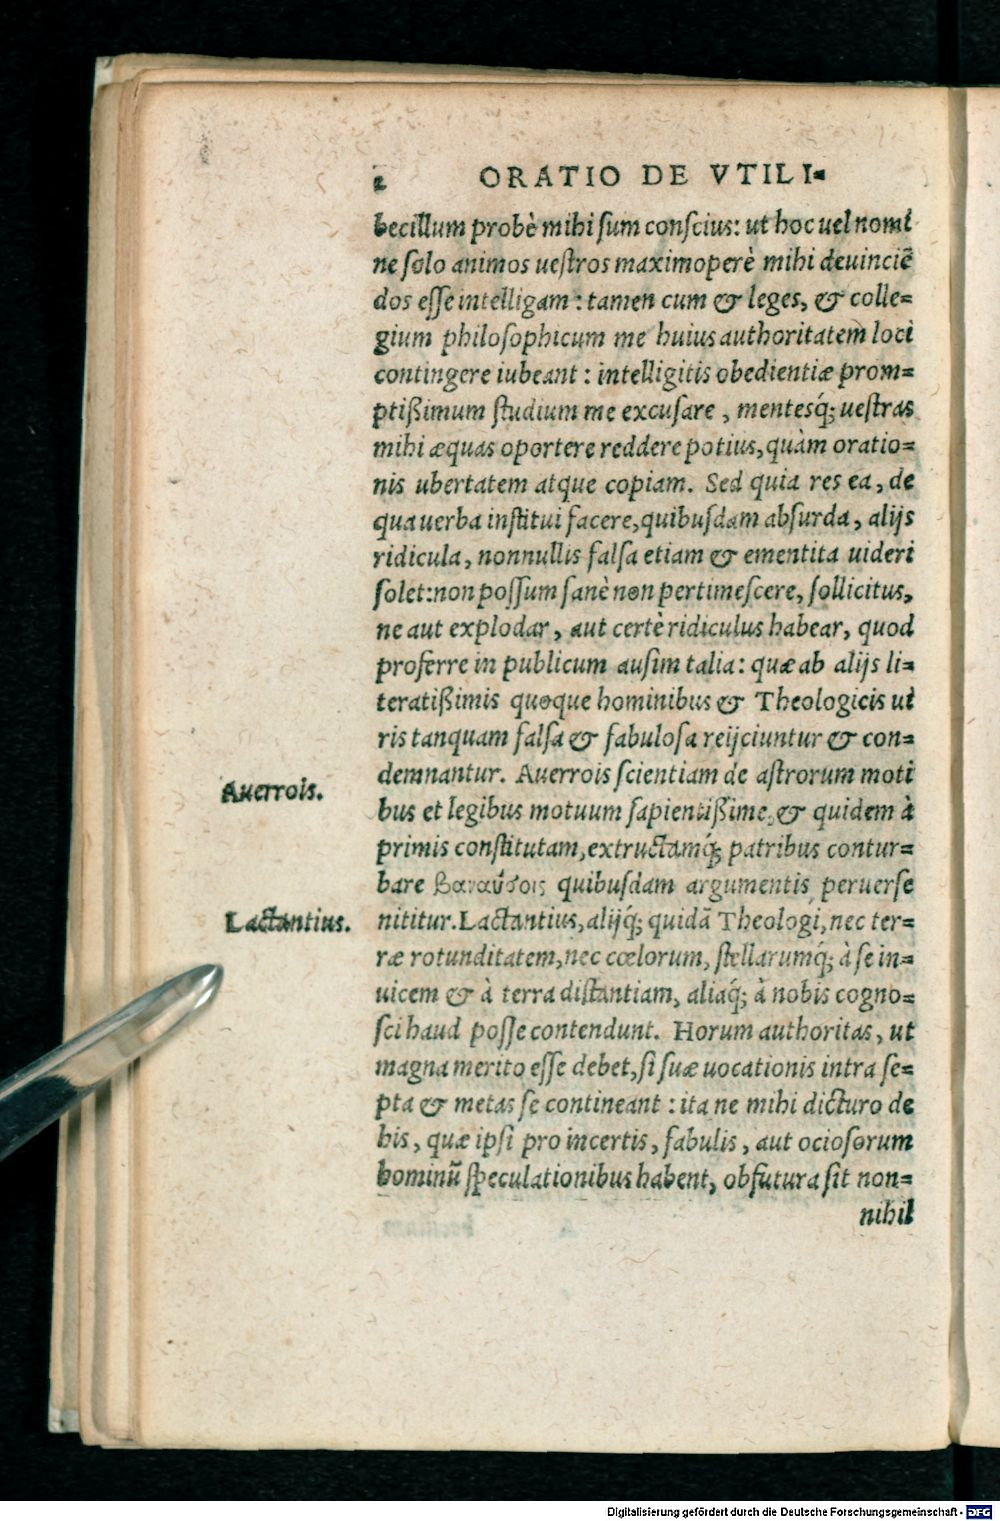 2 ORATIO DE VTILI-
becillum probè mihi sum conscius: ut hoc uel nomi
ne solo animos uestros maximoperè mihi deuinciē
dos esse intelligam: tamen cum & leges, & colle=
gium philosophicum me huius authoritatem loci
contingere iubeant: intelligitis obedientiæ prom=
ptißimum studium me excusare, mentesq́; uestras
mihi æquas oportere reddere potius, quàm oratio=
nis ubertatem atque copiam. Sed quia res ea, de
qua uerba institui facere, quibusdam absurda, alijs
ridicula, nonnullis falsa etiam & ementita uideri
solet: non possum sanè non pertimescere, sollicitus,
ne aut explodar, aut certè ridiculus habear, quod
proferre in publicum ausim talia: quæ ab alijs li=
teratißimis quoque hominibus & Theologicis ui
ris tanquam falsa & fabulosa reijciuntur & con=
demnantur. Auerrois scientiam de astrorum moti
Auerrois.
bus et legibus motuum sapientißime, & quidem à
primis constitutam, extructamq́; patribus contur=
bare βαναύσοις quibusdam argumentis peruerse
nititur. Lactantius, alijq́; quidā Theologi, nec ter=
Lactantius.
ræ rotunditatem, nec cœlorum, stellarumq́; à se in=
uicem & à terra distantiam, aliaq́; à nobis cogno=
sci haud posse contendunt. Horum authoritas, ut
magna merito esse debet, si suæ uocationis intra se=
pta & metas se contineant: ita ne mihi dicturo de
his, quæ ipsi pro incertis, fabulis, aut ociosorum
hominū speculationibus habent, obfutura sit non=
nihil
Digitalisierung gefördert durch die Deutsche Forschungsgemeinschaft - DFG